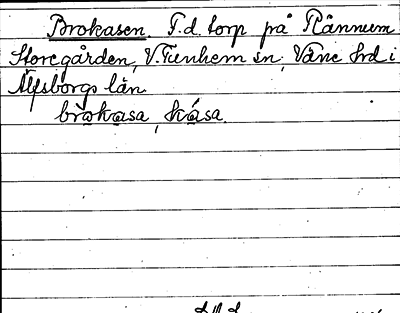 Brokasen. F.d. torp på Rånnum
Storegården, V. Tunhem sn, Väne hd i
Älfsborgs län
brokasa, kása.